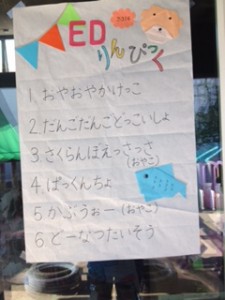 ED
りんぴっく
1.おやおやかけっこ
2.だんごだんごどっこいしょ
3.さくらんぼえっさっさ
(おやこ)
4.ぱっくんちょ
5かぷうぉー(おやこ)
6.どーなつたいそう